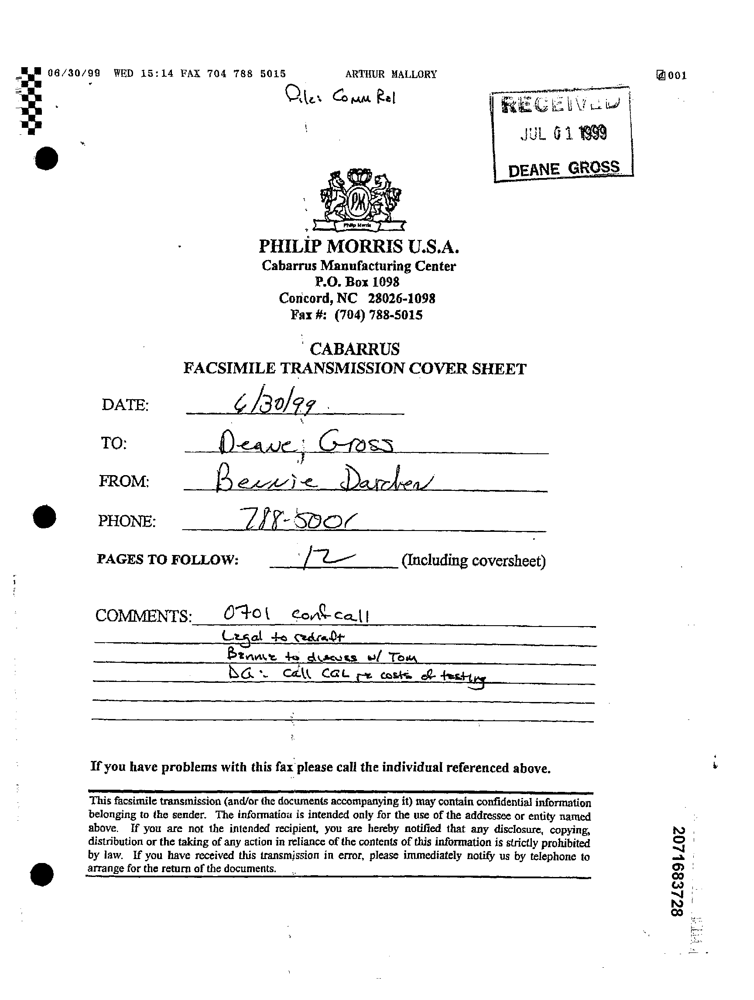 06/30/99 WED 15:14 FAX 704 788 5015 ARTHUR MALLORY 001
File: Comm Rel
RECEIVED
JUL 01 1999
DEANE GROSS
PM
Philip Morris
PHILIP MORRIS U.S.A.
Cabarrus Manufacturing Center
P.O. Box 1098
Concord, NC 28026-1098
Fax #: (704) 788-5015
CABARRUS
FACSIMILE TRANSMISSION COVER SHEET
DATE: 6/30/99
TO: Deane Gross
FROM: Bennie Darden
PHONE: 788-5001
PAGES TO FOLLOW: 12 (Including coversheet)
COMMENTS: 0701 conf call
Legal to redraft
Bennie to discuss w/ Tom
DG: Call CGL re costs of testing
If you have problems with this fax please call the individual referenced above.
This facsimile transmission (and/or the documents accompanying it) may contain confidential information
belonging to the sender. The information is intended only for the use of the addressee or entity named
above. If you are not the intended recipient, you are hereby notified that any disclosure, copying,
distribution or the taking of any action in reliance of the contents of this information is strictly prohibited
by law. If you have received this transmission in error, please immediately notify us by telephone to
arrange for the return of the documents.
2071683728